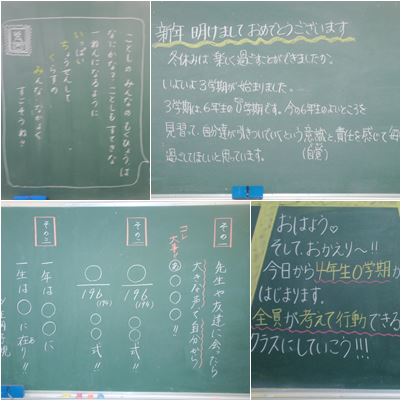 ことしの みんなの もくひょうは
なにかな? ことしも すてきな
一ねんになるように
いっぱい
ちょうせんして
くらすの
みんな なかよく
すごそうね!!
新年 明けまして おめでとうございます
冬休みは 楽しく過ごすことができましたか。
いよいよ3学期が始まりました。
3学期は、6年生の0学期です。今の6年生のよいところを
見習って、自分達が引きついでいくという意識と、責任を感じて毎
(自覚)
過ごしてほしいと思っています。
その一
先生や友達に会ったら
大きな声で自分から
コレ
大事!!
あ○○○○!!
その二
○/196(194) ○○式!!
○/196(194) ○○式!!
その三
一年は○○に
一生は○に在り!!
おはよう♡
そして、おかえり〜!!
今日から4年生0学期が
はじまります。
全員が考えて行動できる
クラスにしていこう!!!